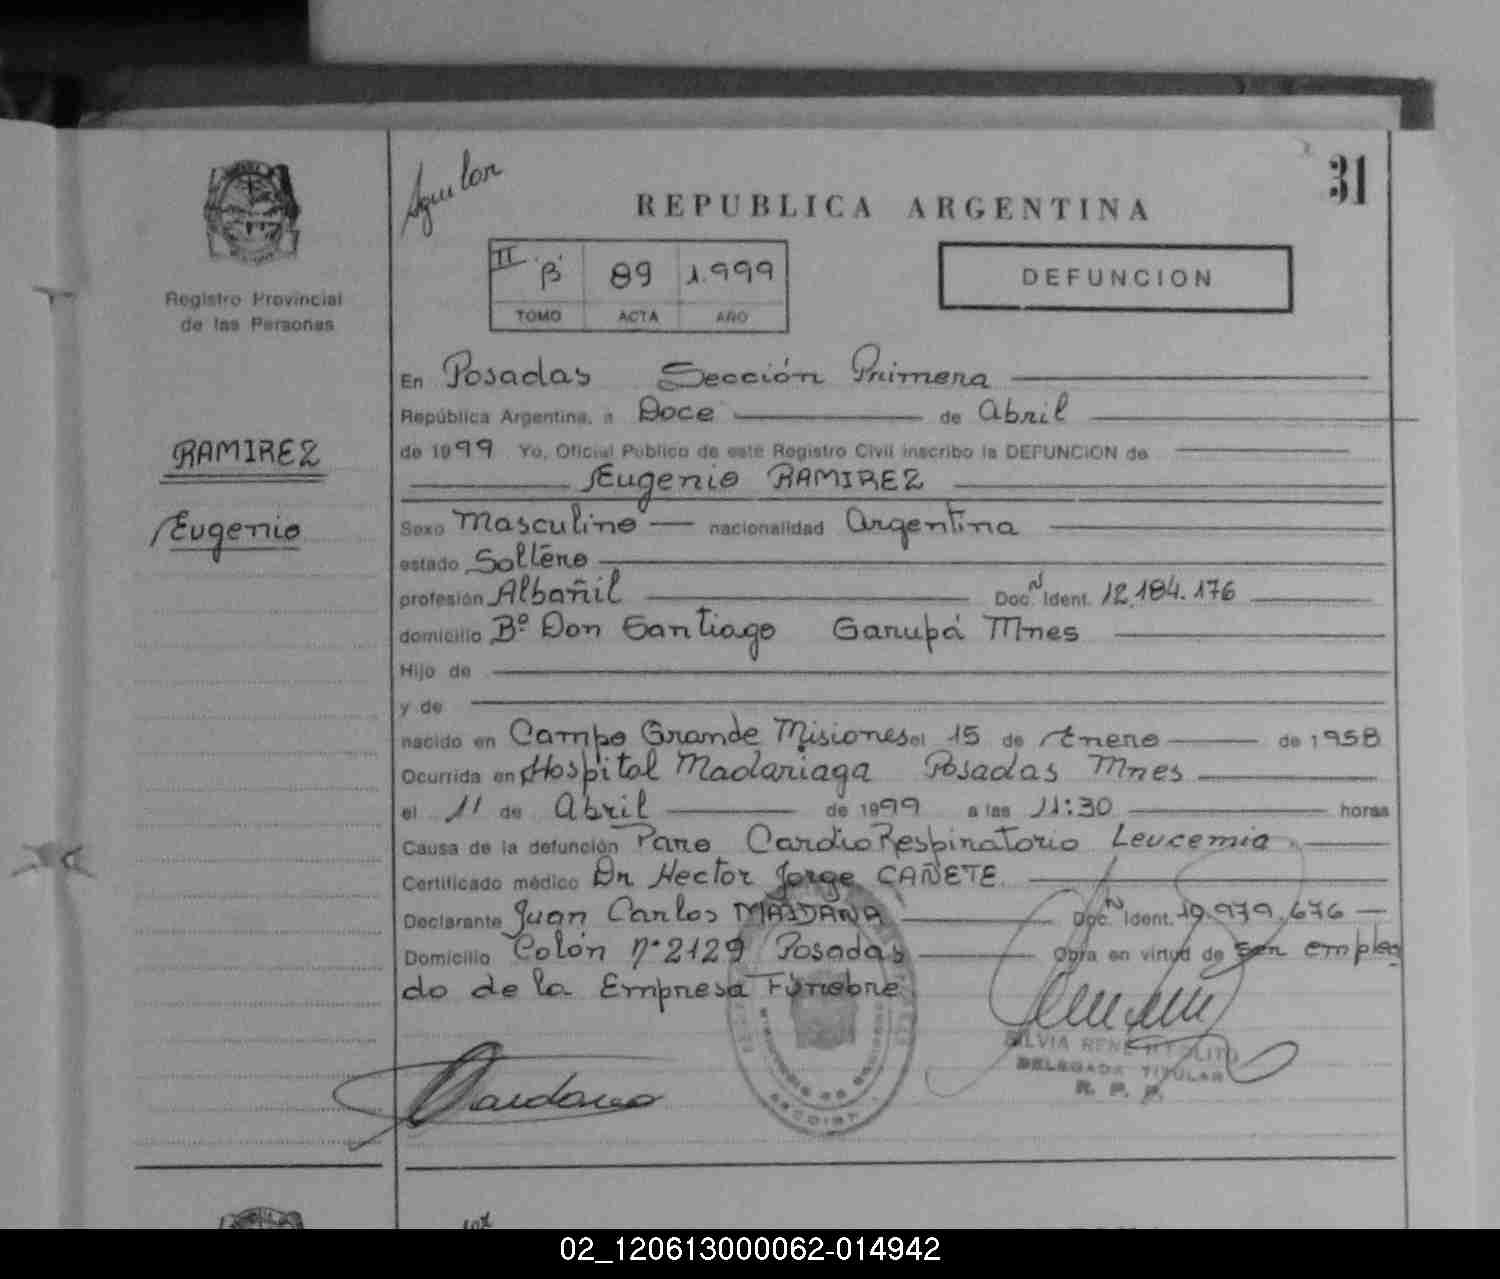 Aguilar
31
REPUBLICA ARGENTINA
II "B" 89 1.999
TOMO ACTA AÑO
DEFUNCION
Registro Provincial
de las Personas
RAMIREZ
Eugenio
En Posadas Sección Primera
República Argentina, a Doce de Abril
de 1999 Yo, Oficial Público de este Registro Civil inscribo la DEFUNCION de
Eugenio RAMIREZ
Sexo Masculino nacionalidad Argentina
estado Soltero
profesión Albañil Doc. N Ident. 12.184.176
domicilio Bº Don Santiago Garupá Mnes
Hijo de
y de
nacido en Campo Grande Misiones el 15 de Enero de 1958
Ocurrida en Hospital Madariaga Posadas Mnes
el 11 de Abril de 1999 a las 11:30 horas
Causa de la defunción Paro CardioRespiratorio Leucemia
Certificado médico Dr Hector Jorge CAÑETE
Declarante Juan Carlos MAIDANA Doc. N Ident. 19.979.676
Domicilio Colón nº 2129 Posadas Obra en virtud de ser emplea
do de la Empresa Fúnebre
SILVIA RENE
DELEGADA TITULAR
R. P. P.
02_120613000062-014942